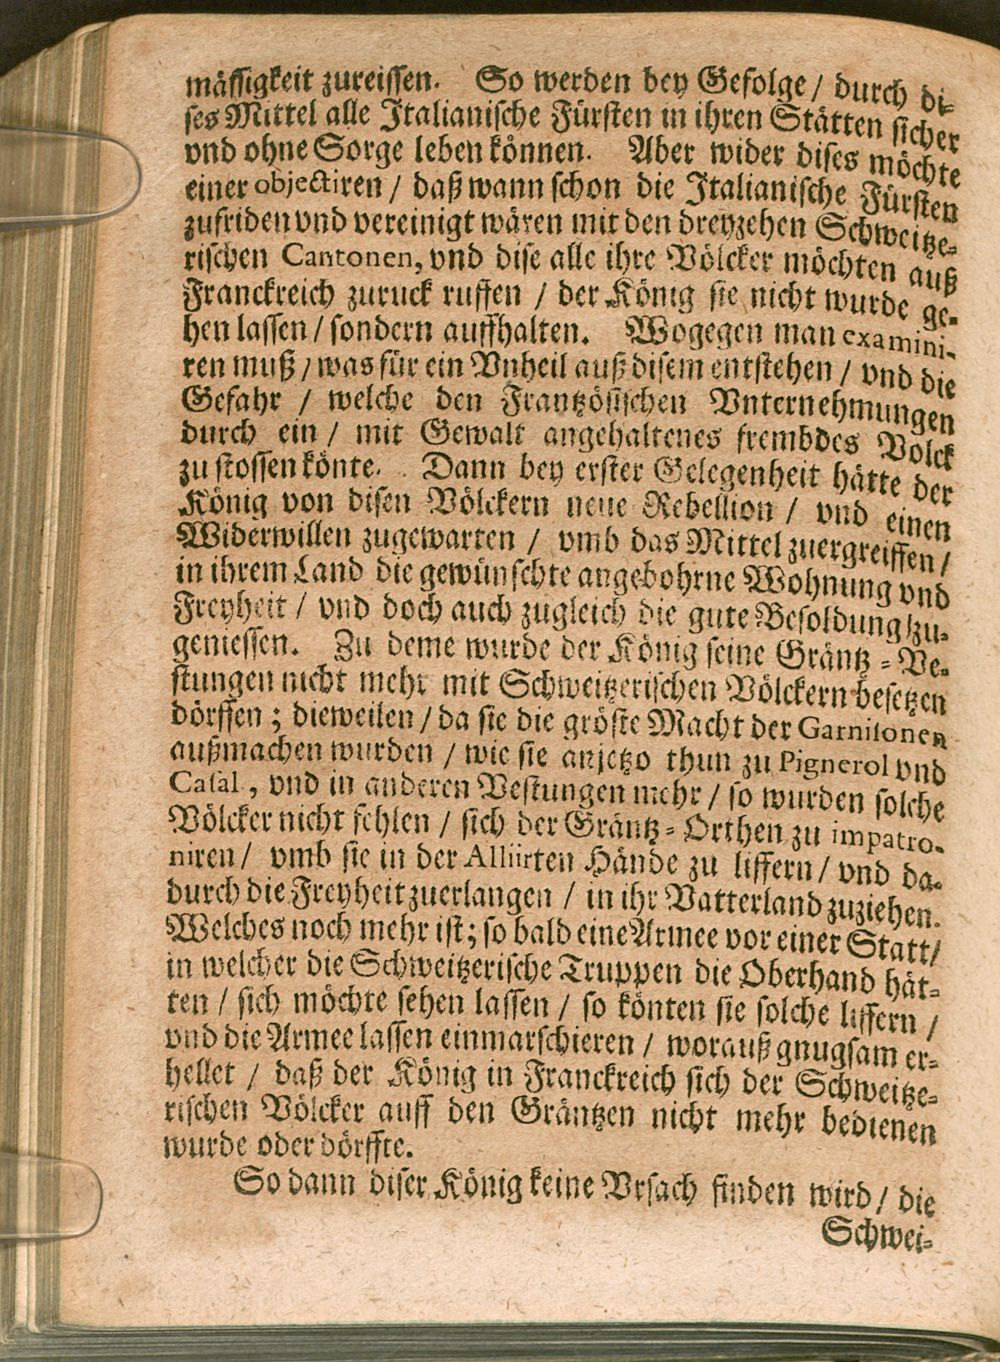 mässigkeit zureissen. So werden bey Gefolge / durch di-
ses Mittel alle Italianische Fürsten in ihren Stätten sicher
vnd ohne Sorge leben können. Aber wider dises möchte
einer objectiren / daß wann schon die Italianische Fürsten
zufriden vnd vereinigt wären mit den dreyzehen Schweitze-
rischen Cantonen, vnd dise alle ihre Völcker möchten auß
Franckreich zuruck ruffen / der König sie nicht wurde ge-
hen lassen / sondern auffhalten. Wogegen man examini-
ren muß / was für ein Vnheil auß disem entstehen / vnd die
Gefahr / welche den Frantzösischen Vnternehmungen
durch ein / mit Gewalt angehaltenes frembdes Volck
zu stossen könte. Dann bey erster Gelegenheit hätte der
König von disen Völckern neue Rebellion / vnd einen
Widerwillen zugewarten / vmb das Mittel zuergreiffen /
in ihrem Land die gewünschte angebohrne Wohnung vnd
Freyheit / vnd doch auch zugleich die gute Besoldung / zu-
geniessen. Zu deme wurde der König seine Gräntz-Ve-
stungen nicht mehr mit Schweitzerischen Völckern besetzen
dörffen; dieweilen / da sie die gröste Macht der Garnisonen
außmachen wurden / wie sie anjetzo thun zu Pignerol vnd
Casal, vnd in anderen Vestungen mehr / so wurden solche
Völcker nicht fehlen / sich der Gräntz-Orthen zu impatro-
niren / vmb sie in der Alliirten Hände zu liffern / vnd da-
durch die Freyheit zuerlangen / in ihr Vatterland zuziehen.
Welches noch mehr ist; so bald eine Armee vor einer Statt /
in welcher die Schweitzerische Truppen die Oberhand hät-
ten / sich möchte sehen lassen / so könten sie solche liffern /
vnd die Armee lassen einmarschieren / worauß gnugsam er-
hellet / daß der König in Franckreich sich der Schweitze-
rischen Völcker auff den Gräntzen nicht mehr bedienen
wurde oder dörffte.
So dann diser König keine Vrsach finden wird / die
Schwei-